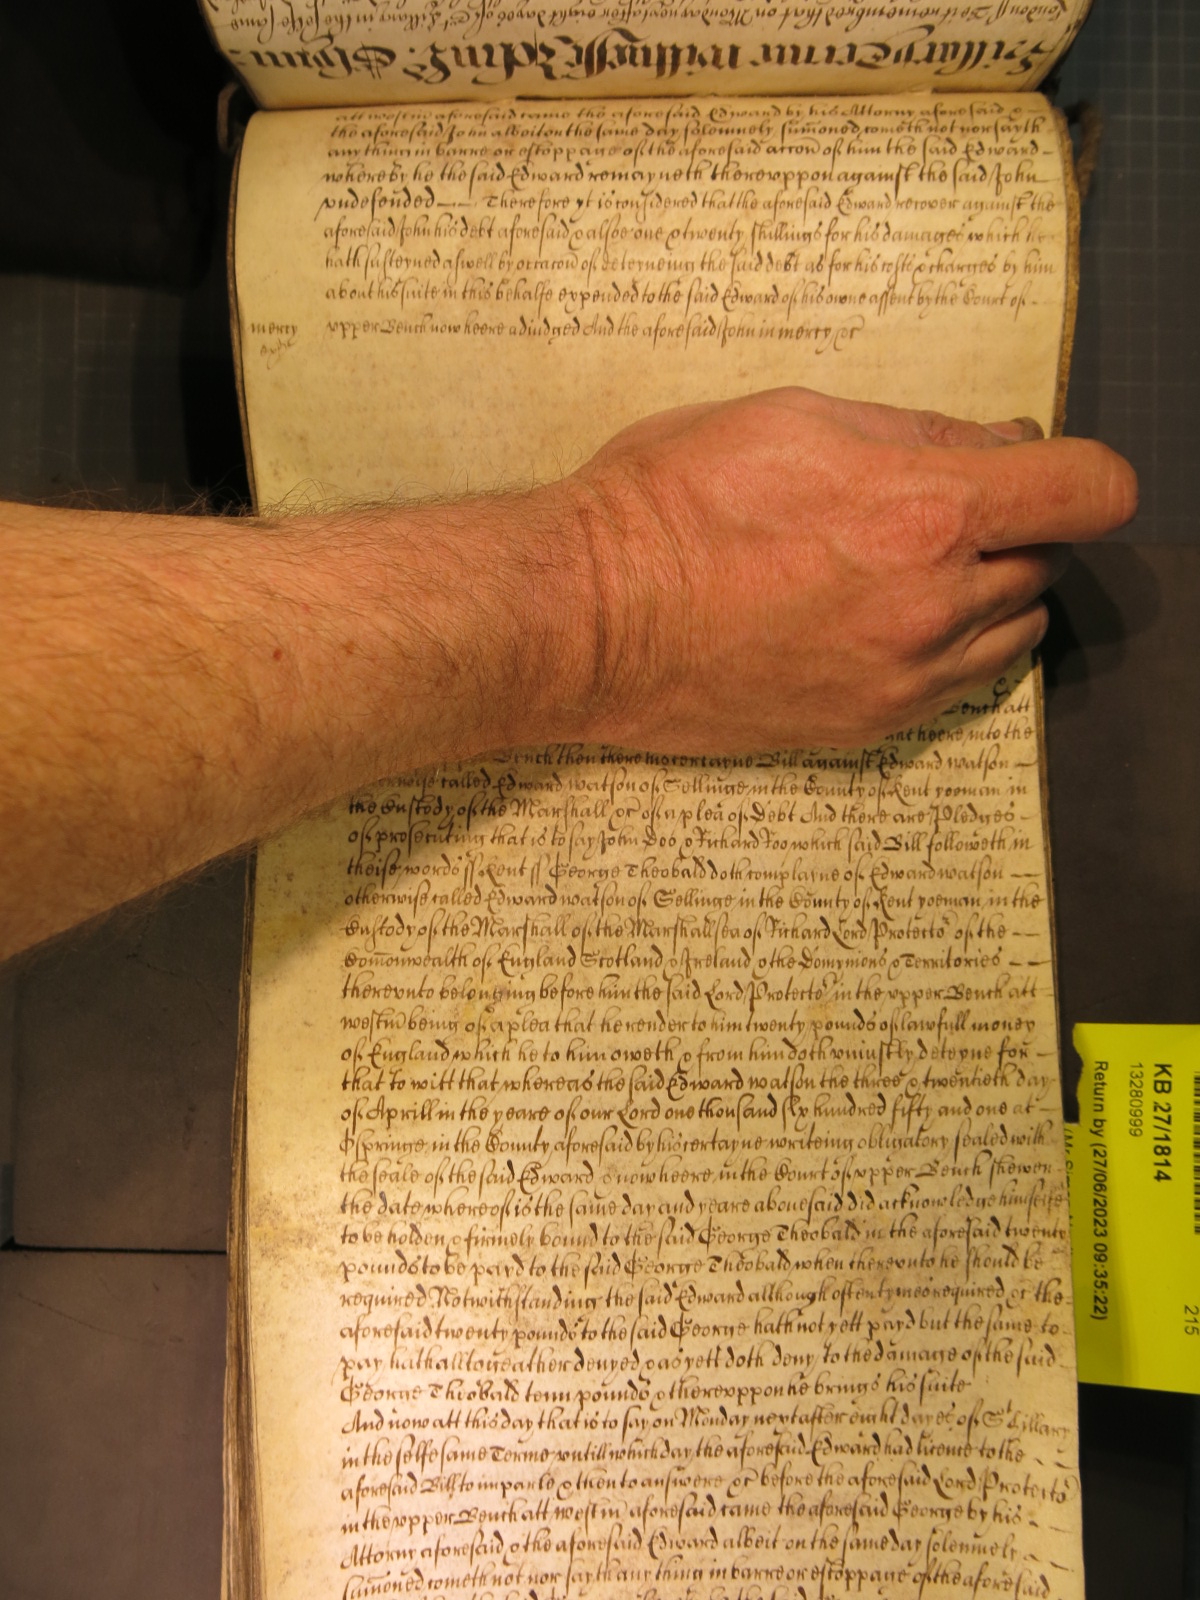 London
Hillary Terme witnesse John Glynn
att Westm aforesaid came the aforesaid Edward by his Attorny aforesaid &
the aforesaid John albeit on the same day solemnely sumoned cometh not nor sayth
any thing in barre or estoppage of the aforesaid accon of him the said Edward
whereby he the said Edward remayneth therevppon against the said John
vndefended Therefore yt is considered that the aforesaid Edward recover against the
aforesaid John his debt aforesaid & alsoe one & twenty shillings for his damages which he
hath susteyned aswell by occacon of deteyneing the said debt as for his costs & charges by him
about his suite in this behalfe expended to the said Edward of his owne assent by the Court of
mercy
vpper Bench now heere adiudged And the aforesaid John in mercy &c
Bench att
heere into the
Bench then there his certayne Bill against Edward Watson
called Edward Watson of Sellinge in the County of Kent yeoman in
the Custody of the Marshall &c of a plea of Debt And there are Pledges
of prosecuting that is to say John Doo & Richard Roo which said Bill followeth in
theise words ss Kent ss George Theobald doth complayne of Edward Watson
otherwise called Edward Watson of Sellinge in the County of Kent yoeman in the
Custody of the Marshall of the Marshallsea of Richard Lord Protector of the
Comonwealth of England Scotland & Ireland & the Dominions & Territories
therevnto belonging before him the said Lord Protector in the vpper Bench att
Westm being of a plea that he render to him twenty pounds of lawfull money
of England which he to him oweth & from him doth vniustly deteyne for
that to witt that whereas the said Edward Watson the three & twentieth day
of Aprill in the yeare of our Lord one thousand six hundred fifty and one at
Ospringe in the County aforesaid by his certayne writeing obligatory sealed with
the seale of the said Edward & now heere in the Court of vpper Bench shewen
the date whereof is the same day and yeare abovesaid did acknowledge himselfe
to be holden & firmely bound to the said George Theobald in the aforesaid twenty
pounds to be payd to the said George Theobald when therevnto he should be
required Notwithstanding the said Edward although oftentymes required &c the
aforesaid twenty pounds to the said George hath not yett payd but the same to
pay hath alltogeather denyed & as yett doth deny To the damage of the said
George Theobald tenn pounds & therevppon he brings his suite
And now att this day that is to say on Monday next after eight dayes of St Hillary
in the selfe same Terme vntill which day the aforesaid Edward had licence to the
aforesaid Bill to imparle & then to answere &c before the aforesaid Lord Protector
in the vpper Bench att Westm aforesaid came the aforesaid George by his
Attorny aforesaid & the aforesaid Edward albeit on the same day solemnely
sumoned cometh not nor sayth any thing in barre or estoppage of the aforesaid
KB 27/1814
13280999
Return by (27/06/2023 09:35:22)
215